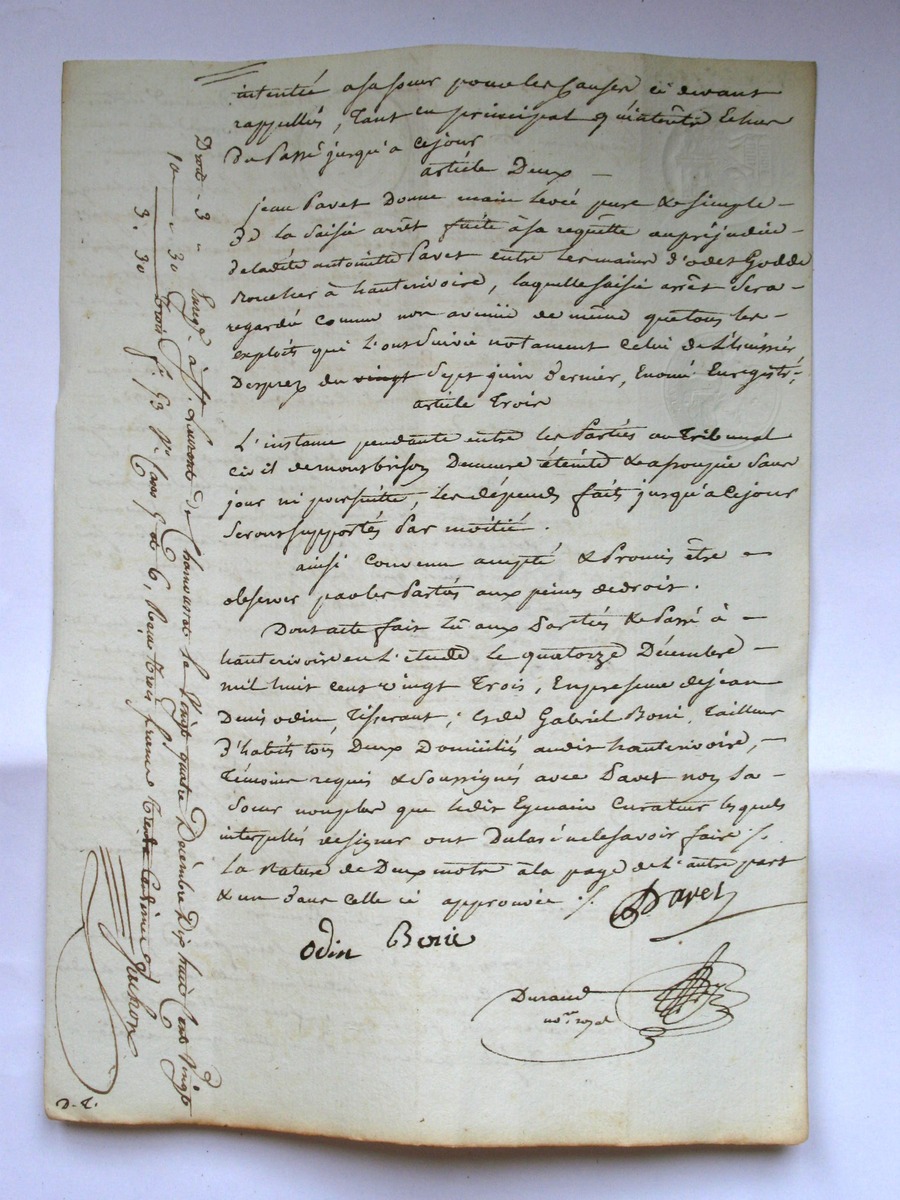 intentée a sa sœur pour les Causes ci devant
rappellés, tant en principal qu'intérêts Echus
Du Passé jusqu'a ce jour
article Deux
jean Pavet Donne main levée pure & simple
De la Saisie arrêt faite à sa requête au préjudice
de ladite antoinette Pavet entre les mains d'odet Godde
rocher à hauterivoire, laquelle saisie arrêt sera
regardé comme non avenüe de même que tous les
exploits qui l'ont Suivie notament Celui de l'huissier
Desprez du vingt Sept juin Dernier, Enoncé Enregistré;
article Trois
L'instance pendante entre les Parties au Tribunal
civil de montbrison Demeure éteinte & assoupie Sans
jour ni poursuitte, Les dépends faits jusqu'a ce jour
Seront supportés Par moitié.
ainsi Convenu accepté & Promis être
observer par les Parties aux peines de droit.
Dont acte fait lû aux Parties & Passé à
hauterivoire en l'étude Le quatorze Décembre
mil huit cent vingt Trois, En presence de jean
Denis odin, Tisserant, & de Gabriel Boni, Tailleur
D'habits tous Deux Domiciliés audit hauterivoire,
Témoins requis & Soussignés avec Pavet non Sa
Soeur non plus que ledit Eymain Curateur lesquels
interpellés de signer ont Déclaré ne le savoir faire ./.
La rature de Deux mots à la page de l'autre part
& un Dans celle ci approuvée ./.
Pavet
odin Bonie
Durand
no.re royal
Droit - 3 " Enregé. à St. Laurent de Chamousset le Vingt quatre Décembre Dix huit Cent Vingt
10 - " 30 Trois f.° 93 V.° Case 5 à 6, Reçu trois francs trente Centimes
3. 30
Guichon
D. T.